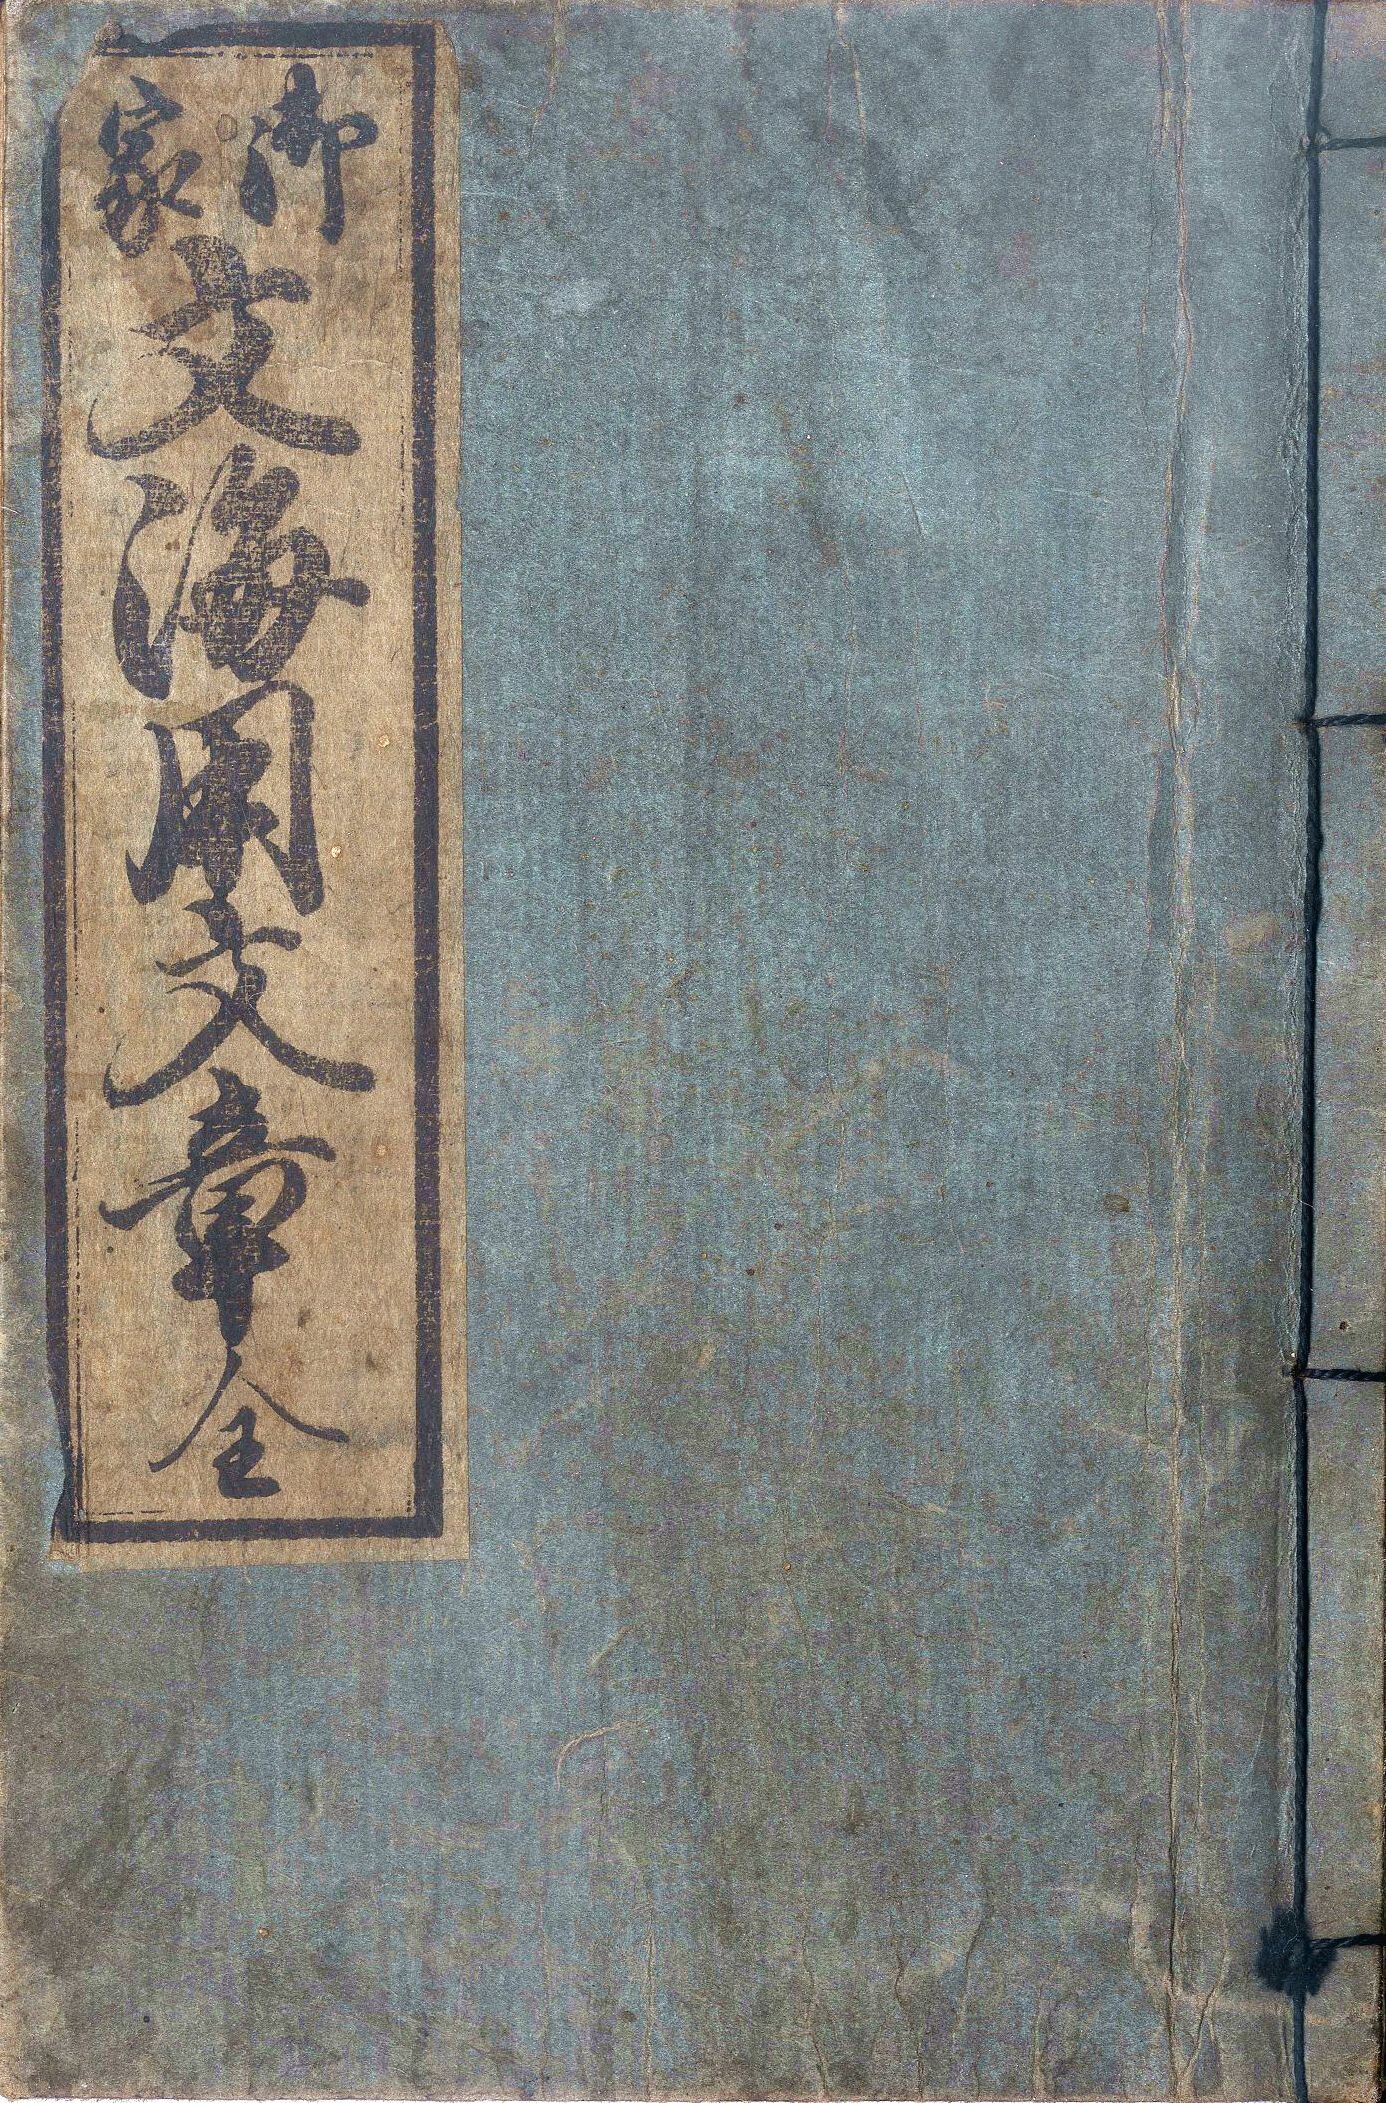 御家
文海用文章全